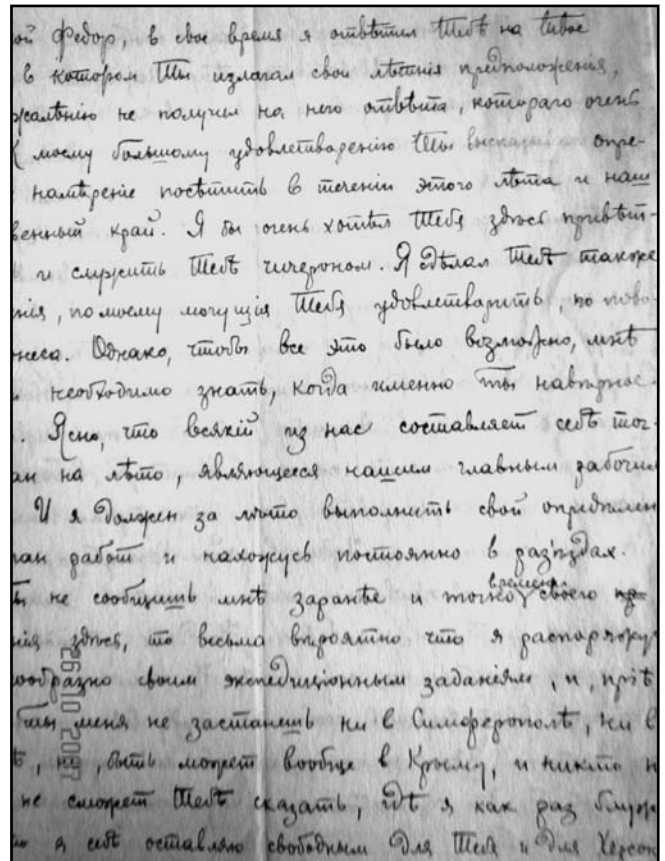 ой Федор, в свое время я отвѣтил Тебѣ на Твое
в котором Ты излагал свои лѣтнія предположенія,
жалѣнію не получил на него отвѣта, котораго очень
К моему большому удовлетворенію Ты высказыв опре-
намѣреніе посѣтить в теченіи этого лѣта и наш
венный край. Я бы очень хотѣл Тебя здѣсь привѣт-
и служить Тебѣ чичероном. Я сдѣлал Тебѣ также
нія, по моему могущія Тебя удовлетварить, по пово-
неса. Однако, чтобы все это было возможно, мнѣ
необходимо знать, когда именно ты навѣрное
. Ясно, что всякій из нас составляет себѣ точ-
ан на лѣто, являющееся нашим главным рабочим
И я должен за лѣто выполнить свой опредѣлен
лан работ и нахожусь постоянно в раз'ѣздах.
не сообщишь мнѣ заранѣе и точно времени своего пр
нія здѣсь, то весьма вѣроятно что я распоряжус
ообразно своим экспедиціонным заданіям, и, пріѣ
ты меня не застанешь ни в Симферополѣ, ни в
ѣ, ни, быть может вообще в Крыму, и никто н
не сможет Тебѣ сказать, гдѣ я как раз блуж
я себѣ оставляю свободным для Тебя и для Херсон
26 10 2007